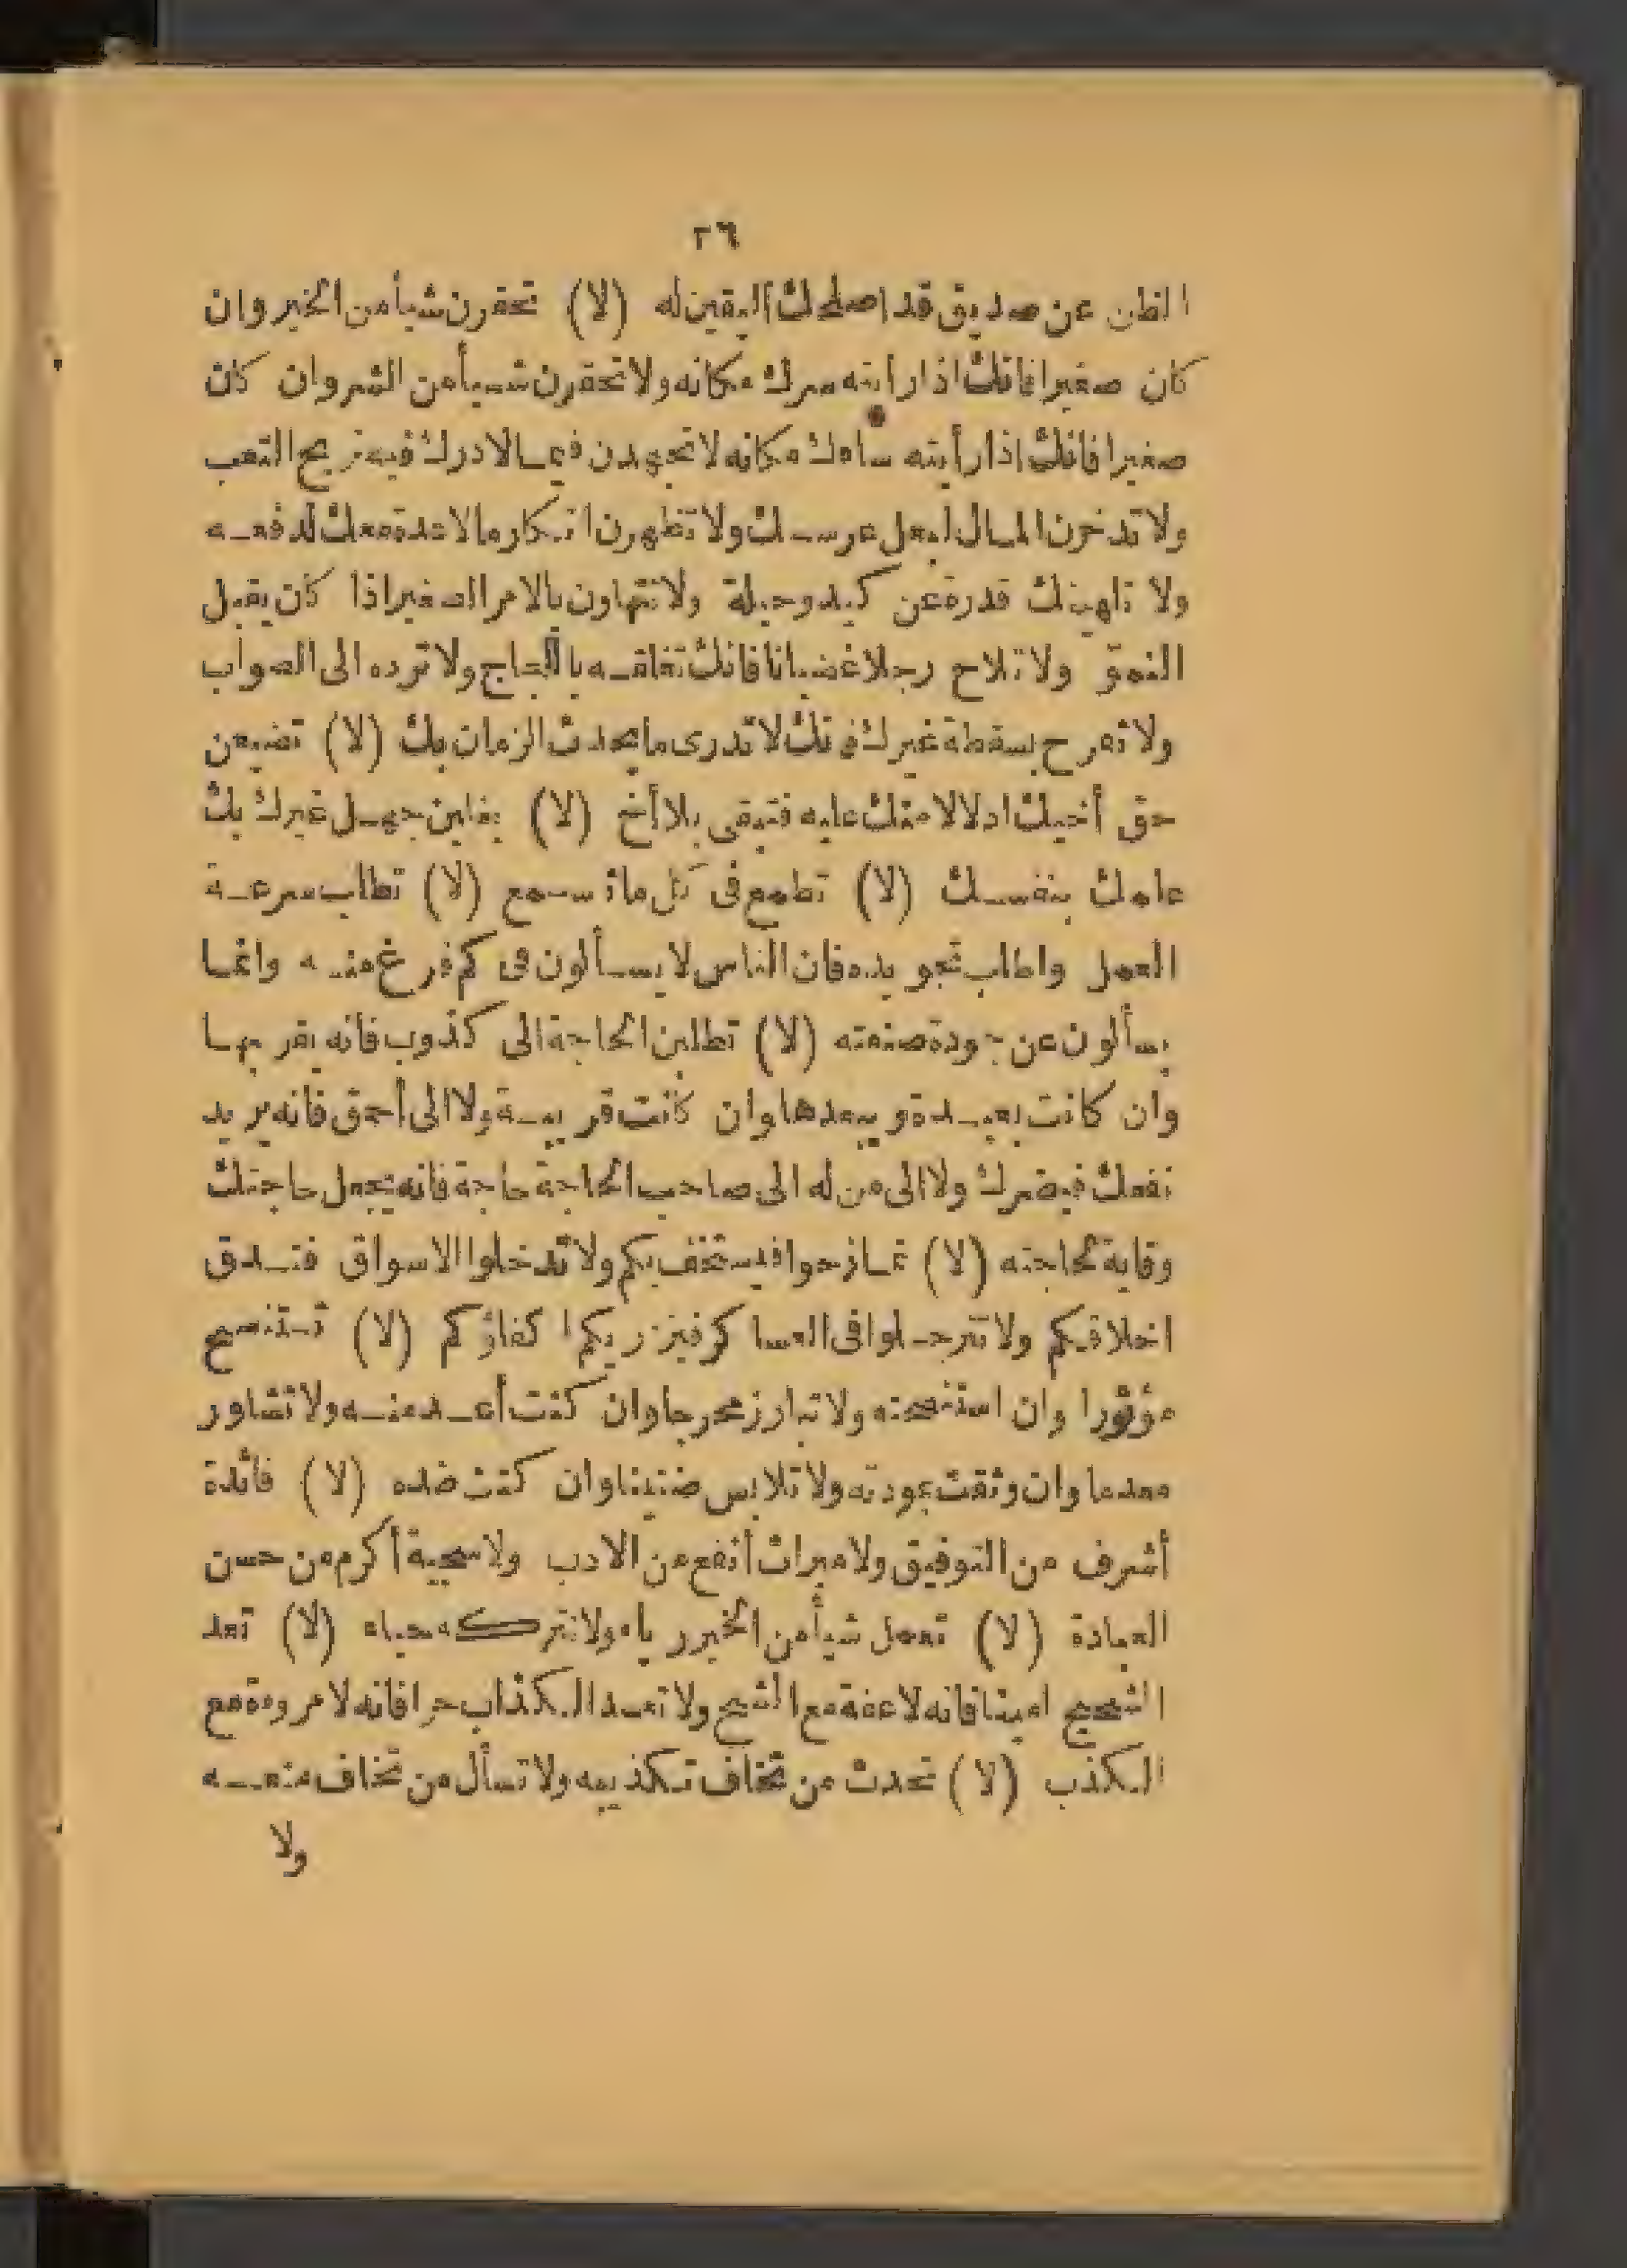 ٢٦
الظن عن صديق قد اصلحك اليقين له (لا) تحقرن شيأ من الخير وان
كان صغيرا فانك اذا رأيته سرك مكانه ولا تحقرن شيأ من الشر وان كان
صغيرا فانك اذا رأيته ساءك مكانه لا تجهدن فيما لا درك فيه تربح التعب
ولا تدخرن المال لبعل عرسك ولا تظهرن انكار ما لا عدة معك لدفعه
ولا تلهينك قدرة عن كيد وحيلة ولا تتهاون بالامر الصغير اذا كان يقبل
النمو ولا تلاح رجلا غضبانا فانك تقلقه باللجاج ولا ترده الى الصواب
ولا تفرح بسقطة غيرك فانك لا تدرى ما يحدث الزمان بك (لا) تضيعن
حق أخيك ادلالا منك عليه فتبقى بلا أخ (لا) يغلبن جهل غيرك بك
علمك بنفسك (لا) تطمع فى كل ما تسمع (لا) تطلب سرعة
العمل واطلب تجويده فان الناس لا يسألون فى كم فرغ منه وانما
يسألون عن جودة صنعته (لا) تطلبن الحاجة الى كذوب فانه يقربها
وان كانت بعيدة ويبعدها وان كانت قريبة ولا الى أحمق فانه يريد
نفعك فيضرك ولا الى من له الى صاحب الحاجة حاجة فانه يجعل حاجتك
وقاية لحاجته (لا) تمازحوا فيستخف بكم ولا تدخلوا الاسواق فتدق
اخلاقكم ولا تترجلوا فى العساكر فيزريكم اكفاؤكم (لا) تستنصح
موتورا وان استنصحته ولا تبارز محرجا وان كنت أعد منه ولا تشاور
معدما وان وثقت بمودته ولا تلابس ضنينا وان كنت ضده (لا) فائدة
أشرف من التوفيق ولا ميراث أنفع من الادب ولا سجية أكرم من حسن
العبادة (لا) تعمل شيأ من الخير رياء ولا تتركه حياء (لا) تعد
الشحيح امينا فانه لا عفة مع الشح ولا تعد الكذاب حرا فانه لا مروءة مع
الكذب (لا) تحدث من تخاف تكذيبه ولا تسأل من تخاف منعه
ولا